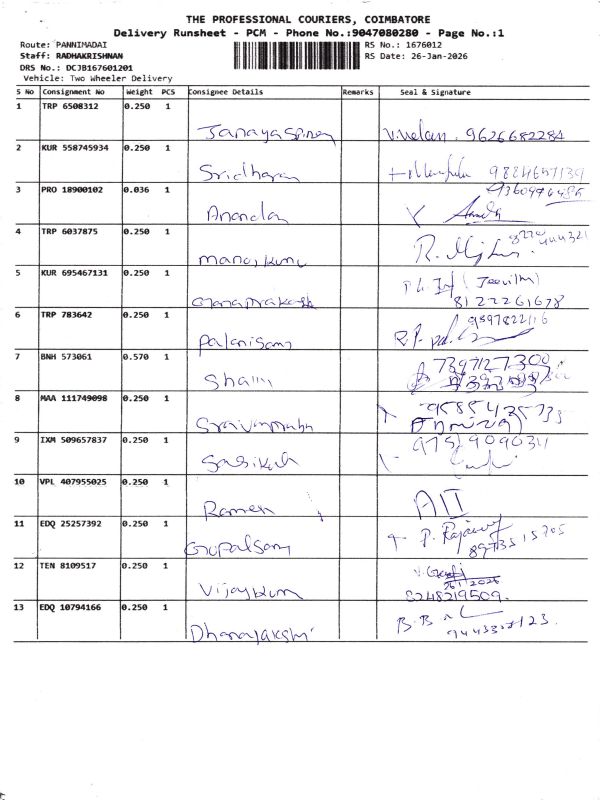 THE PROFESSIONAL COURIERS, COIMBATORE
Delivery Runsheet - PCM - Phone No.:9047080280 - Page No.:1
Route: PANNIMADAI
RS No.: 1676012
Staff: RADHAKRISHNAN
RS Date: 26-Jan-2026
DRS No.: DCJB167601201
Vehicle: Two Wheeler Delivery
S No Consignment No Weight PCS Consignee Details Remarks Seal & Signature
1 TRP 6508312 0.250 1
V.Velan. 9626682284
2 KUR 558745934 0.250 1
Sridharan 9884647139
3 PRO 18900102 0.036 1
Anandan
4 TRP 6037875 0.250 1
manojkumu
5 KUR 695467131 0.250 1
Gnanaprakash
8122261678
6 TRP 783642 0.250 1
9597822116
Palanisamy
7 BNH 573061 0.570 1
7397127300
Sham
8 MAA 111749098 0.250 1
9585425733
9 IXM 509657837 0.250 1
Sasikala
10 VPL 407955025 0.250 1
Ramen
11 EDQ 25257392 0.250 1
Gopalsamy 8973515705
12 TEN 8109517 0.250 1
26/1/2026
Vijaykum 8248219509.
13 EDQ 10794166 0.250 1
Dhanalakshmi